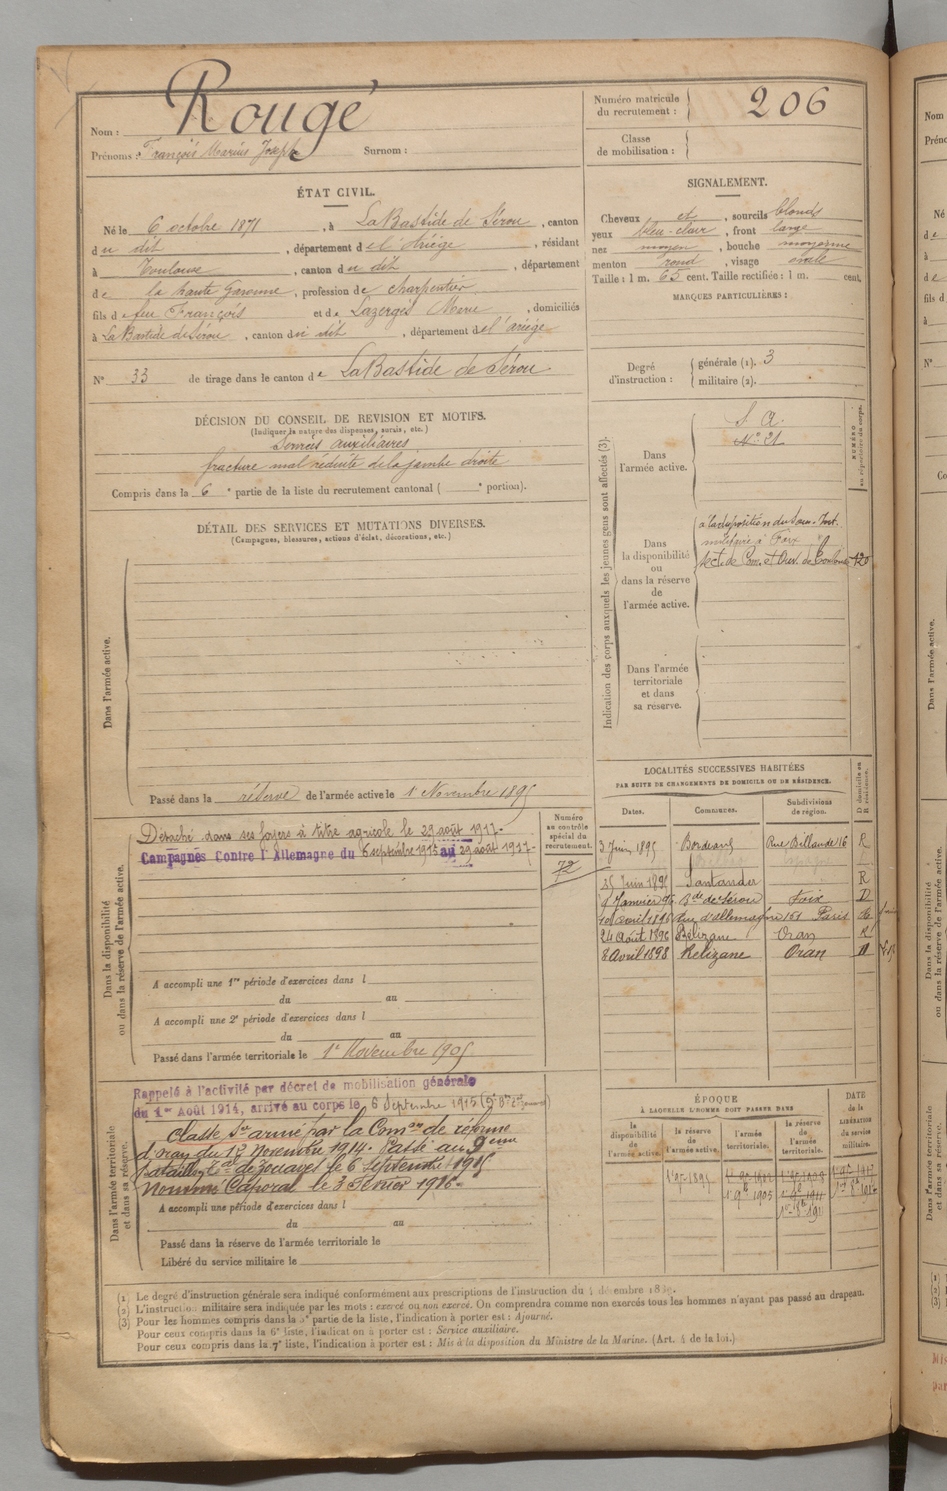 Nom : Rougé
Prénoms : François Marius Joseph Surnom :
Numéro matricule du recrutement : 206
Classe de mobilisation :
ÉTAT CIVIL.
Né le 6 octobre 1871, à LaBastide de Sérou, canton
du dit, département de l'Ariége, résidant
à Toulouse, canton du dit, département
de la haute Garonne, profession de charpentier
fils de feu François et de Lazerges Marie, domiciliés
à La Bastide de Sérou, canton du dit, département de l'ariége
N° 33 de tirage dans le canton de LaBastide de Sérou
SIGNALEMENT.
Cheveux et, sourcils blonds
yeux bleu-clair, front large
nez moyen, bouche moyenne
menton rond, visage ovale
Taille : 1 m. 65 cent. Taille rectifiée : 1 m. cent.
MARQUES PARTICULIÈRES :
Degré d'instruction :
générale (1). 3
militaire (2).
DÉCISION DU CONSEIL DE REVISION ET MOTIFS.
(Indiquer la nature des dispenses, sursis, etc.)
Services auxiliaires
fracture mal réduite de la jambe droite
Compris dans la 6e partie de la liste du recrutement cantonal ( e portion).
DÉTAIL DES SERVICES ET MUTATIONS DIVERSES.
(Campagnes, blessures, actions d'éclat, décorations, etc.)
Dans l'armée active.
Passé dans la réserve de l'armée active le 1 Novembre 1895
Indication des corps auxquels les jeunes gens sont affectés (3).
NUMÉRO au répertoire du corps.
Dans l'armée active.
S. A.
N° 21
Dans la disponibilité ou dans la réserve de l'armée active.
à la disposition du
militaire à Foix
Sect. de Com. et Ouv. de Toulouse 120
Dans l'armée territoriale et dans sa réserve.
LOCALITÉS SUCCESSIVES HABITÉES
PAR SUITE DE CHANGEMENTS DE DOMICILE OU DE RÉSIDENCE.
Dates. Communes. Subdivisions de région. D domicile ou R résidence.
3 Juin 1895 Bordeaux Rue Billaudel 16 R
25 Juin 1895 Santander R
Janvier 96 Bde de Sérou Foix D
avril 1896 Rue d'allemagne 151 Paris R
24 Août 1896 Relizane Oran R
8 Avril 1898 Relizane Oran D
Dans la disponibilité ou dans la réserve de l'armée active.
Numéro au contrôle spécial du recrutement.
72
Détaché dans ses foyers à titre agricole le 29 août 1917.
Campagnes Contre l'Allemagne du 6 septembre 1915 au 29 août 1917.
A accompli une 1re période d'exercices dans l
du au
A accompli une 2e période d'exercices dans l
du au
Passé dans l'armée territoriale le 1r Novembre 1905
Dans l'armée territoriale et dans sa réserve.
Rappelé à l'activité par décret de mobilisation générale
du 1er Août 1914, arrivé au corps le 6 Septembre 1915
Classé Sce armé par la Comon de réforme
d'Oran du Novembre 1914. Passé au 9eme
bataillon de Zouaves le 6 Septembre 1915
Nommé Caporal le 3 Février 1916.
A accompli une période d'exercices dans l
du au
Passé dans la réserve de l'armée territoriale le
Libéré du service militaire le
ÉPOQUE
À LAQUELLE L'HOMME DOIT PASSER DANS
la disponibilité de l'armée active. la réserve de l'armée active. l'armée territoriale. la réserve de l'armée territoriale. DATE de la LIBÉRATION du service militaire.
(1) Le degré d'instruction générale sera indiqué conformément aux prescriptions de l'instruction du 4 décembre 1889.
(2) L'instruction militaire sera indiquée par les mots : exercé ou non exercé. On comprendra comme non exercés tous les hommes n'ayant pas passé au drapeau.
(3) Pour les hommes compris dans la 5e partie de la liste, l'indication à porter est : Ajourné.
Pour ceux compris dans la 6e liste, l'indication à porter est : Service auxiliaire.
Pour ceux compris dans la 7e liste, l'indication à porter est : Mis à la disposition du Ministre de la Marine. (Art. 4 de la loi.)